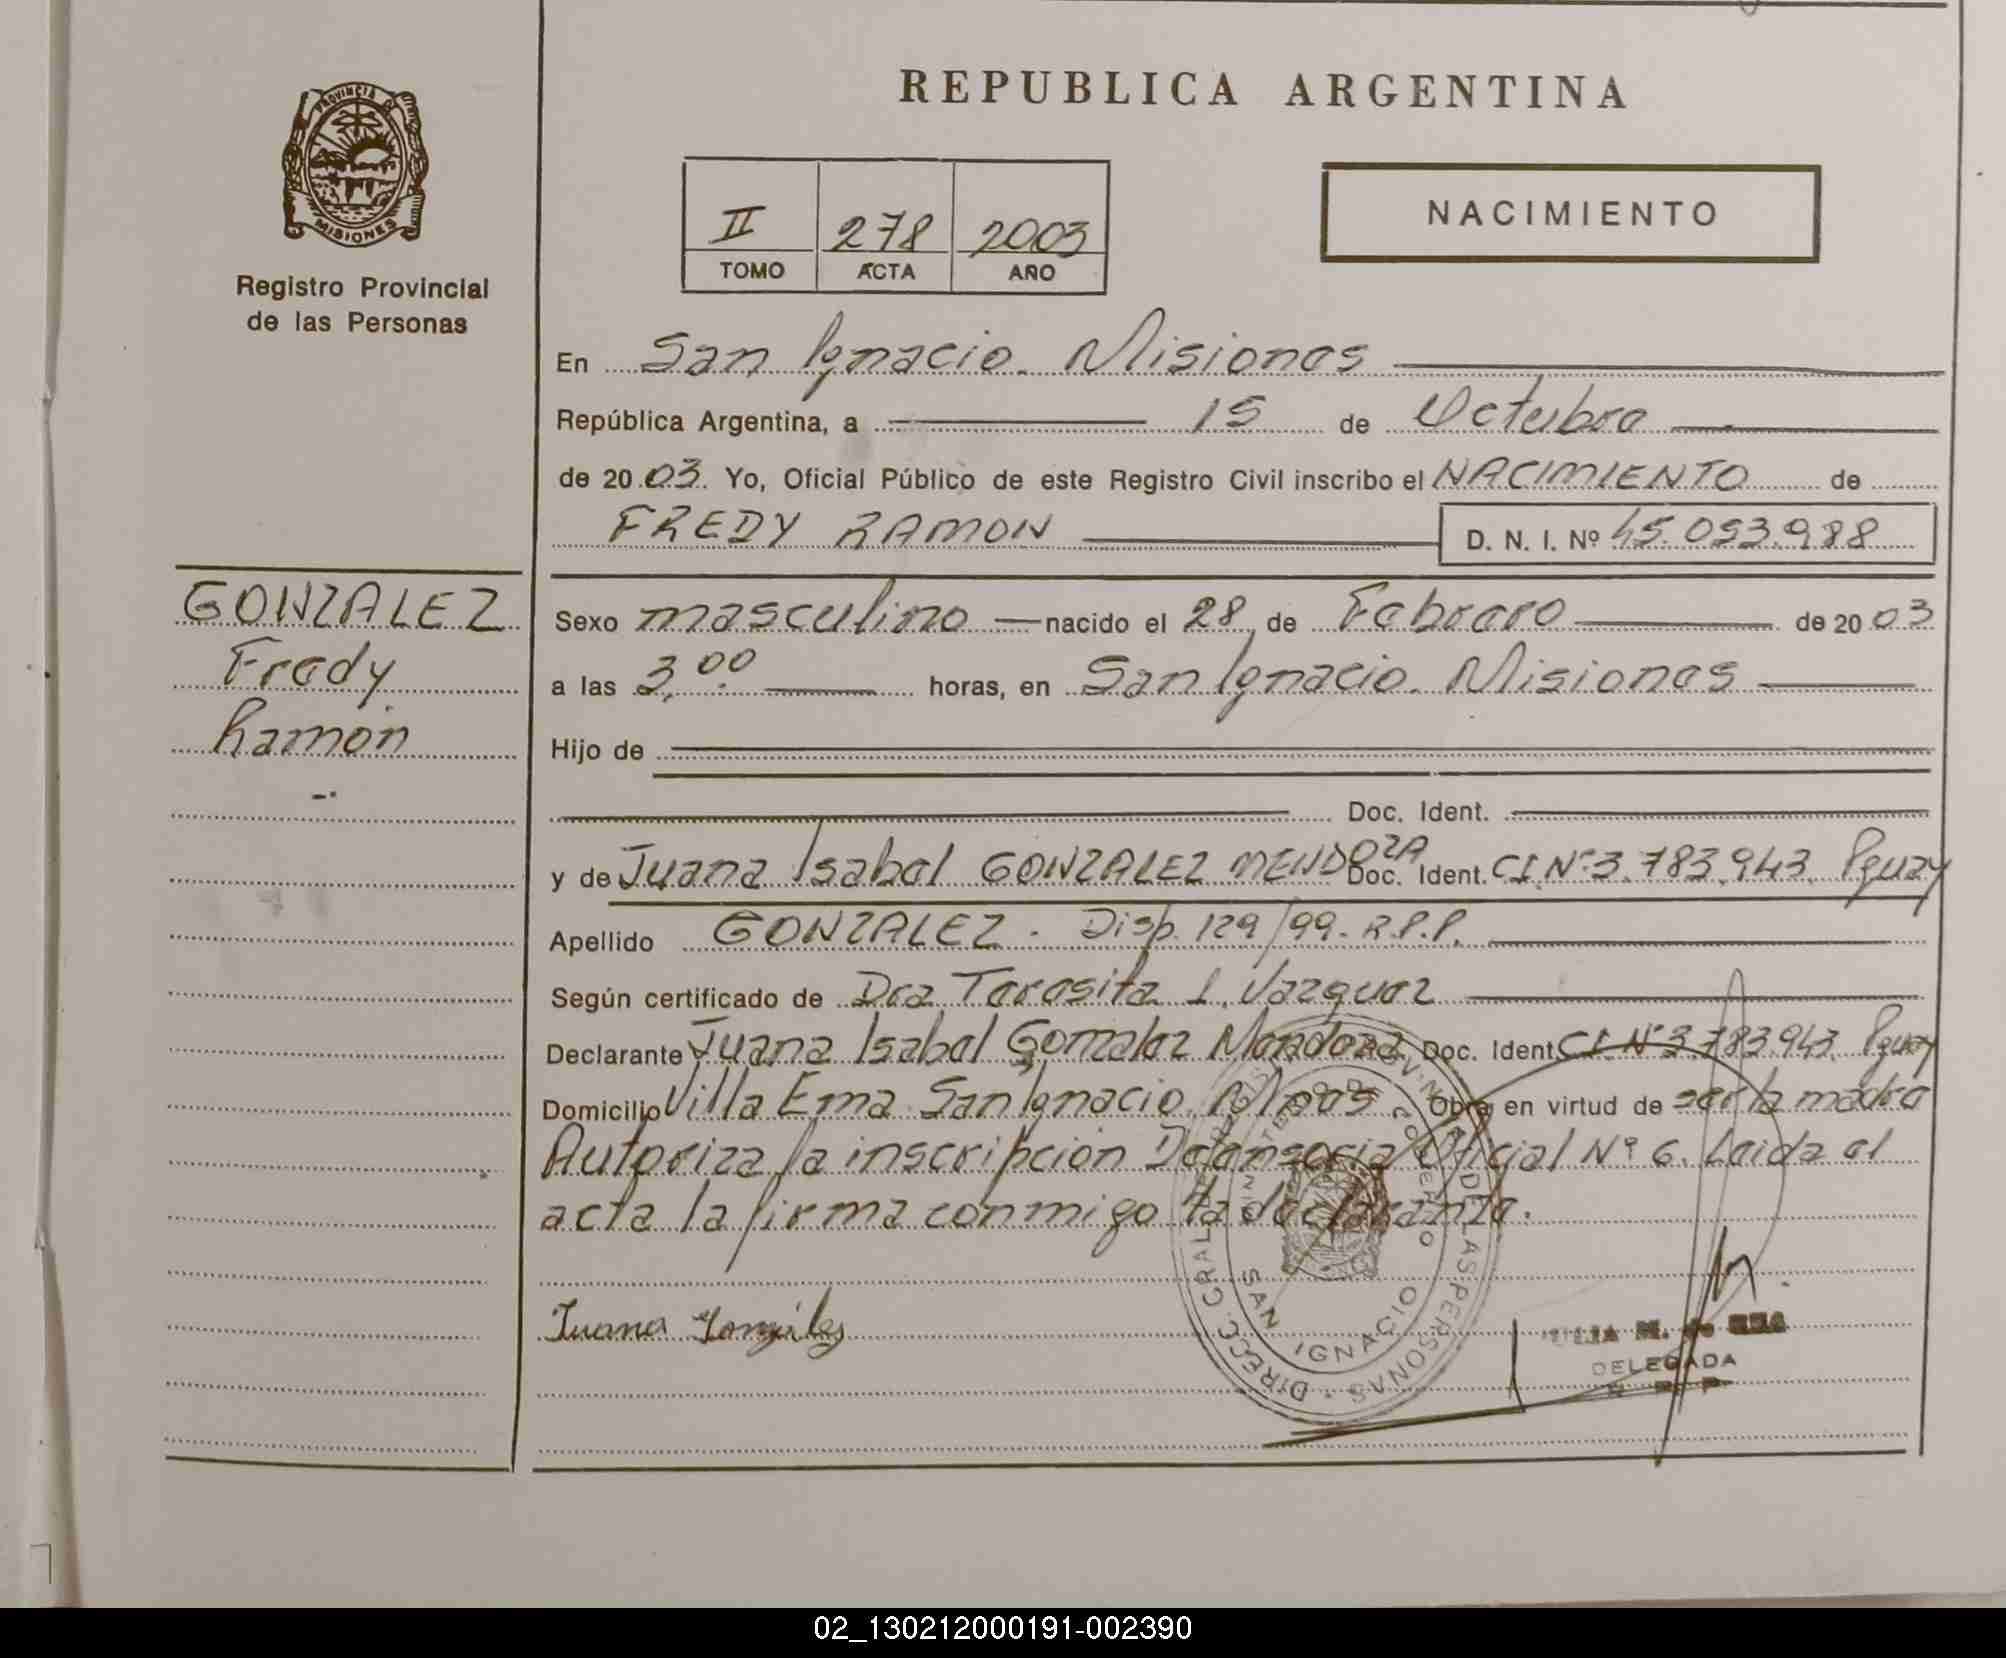 REPUBLICA ARGENTINA
PROVINCIA DE
MISIONES
Registro Provincial
de las Personas
II 278 2003
TOMO ACTA AÑO
NACIMIENTO
En San Ignacio. Misiones
República Argentina, a 15 de Octubre
de 2003. Yo, Oficial Público de este Registro Civil inscribo el NACIMIENTO de
FREDY RAMON D. N. I. Nº 45.053.988
GONZALEZ
Fredy
Ramón
Sexo masculino nacido el 28 de Febrero de 2003
a las 3,00 horas, en San Ignacio. Misiones
Hijo de
Doc. Ident.
y de Juana Isabel GONZALEZ MENDOZA Doc. Ident. CI.Nº 3.783.943. Pguay
Apellido GONZALEZ. Disp. 129/99. R.P.P.
Según certificado de Dra Teresita I. Vazquez
Declarante Juana Isabel Gonzalez Mendoza Doc. Ident. C.I. Nº 3.783.943. Pguay
Domicilio Villa Ema. San Ignacio. Mnes Obra en virtud de ser la madre
Autoriza la inscripción Defensoria Oficial Nº 6. Leida el
acta la firma conmigo la declarante.
Juana González
SAN IGNACIO
DE LAS PERSONAS
M. de
DELEGADA
R. P. P.
02_130212000191-002390